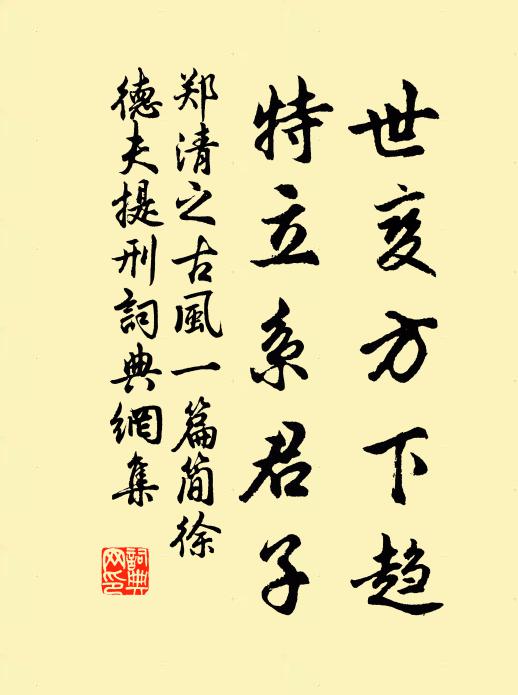 世变方下趋
特立系君子
郑清之古風一篇简徐
德夫提刑詞典網集
詞典网印